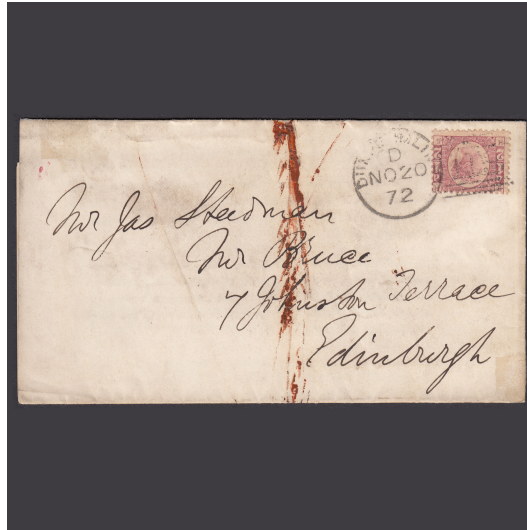 D
NO 20
72
Mr Jas Steedman
Mr Bruce
7 Johnston Terrace
Edinburgh